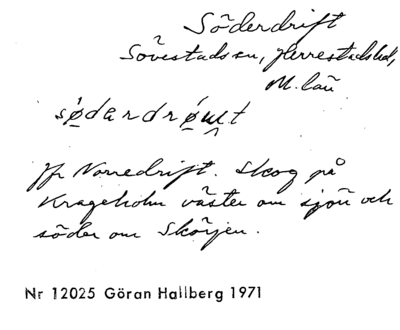 Söderdrift
Sövestads sn, Herrestads hd,
M. län
Jfr Norredrift. Skog på
Krageholm väster om sjön och
söder om Skönjen.
Nr 12025 Göran Hallberg 1971